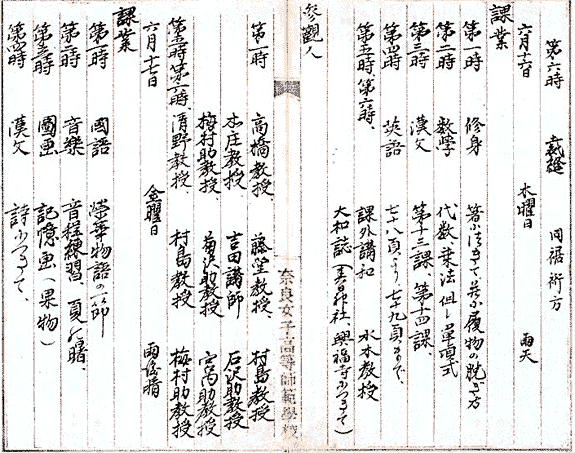 第六時 裁縫 同裾裄方
六月十六日 木曜日 雨天
課業
第一時 修身 箸ノ法まで並ニ履物の脱ぎ方
第二時 数學 代数、乗法但し単項式
第三時 漢文 第十三課、第十四課、
第四時 英語 七十八頁より七十九頁まで、
第五時、第六時、 課外講和 水木教授
大和誌(春日神社、興福寺ニつきて)
参觀人
第一時 高橋教授、藤堂教授、村島教授
本庄教授 吉田講師 石沢助教授
梅村助教授、菊沢助教授 宮高助教授
第五時第六時、清野教授、村島教授 梅村助教授
六月十七日 金曜日 雨後晴
課業
第一時 國語 榮華物語の一節
第二時 音樂 音程練習、夏の曙、
第三時 圖画 記憶画(果物)
第四時 漢文 詩ニつきて、
奈良女子高等師範學校